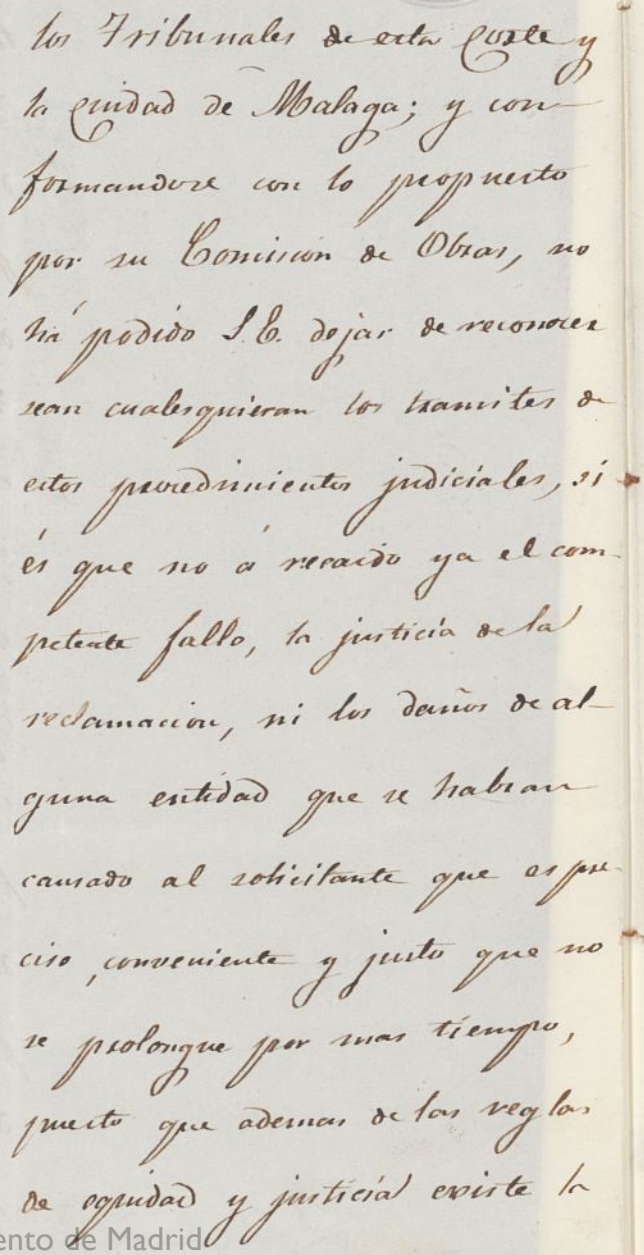 los Tribunales de esta Corte y
la ciudad de Malaga; y con-
formandose con lo propuesto
por su Comision de Obras, no
há podido S.E. dejar de reconocer
sean cualesquieran los tramites de
estos procedimientos judiciales, si
és que no á recaido ya el com-
petente fallo, la justicia de la
reclamacion, ni los daños de al-
guna entidad que se habran
causado al solicitante que es pre-
ciso, conveniente y justo que no
se prolongue por mas tiempo,
puesto que ademas de las reglas
de equidad y justicia existe la
ento de Madrid